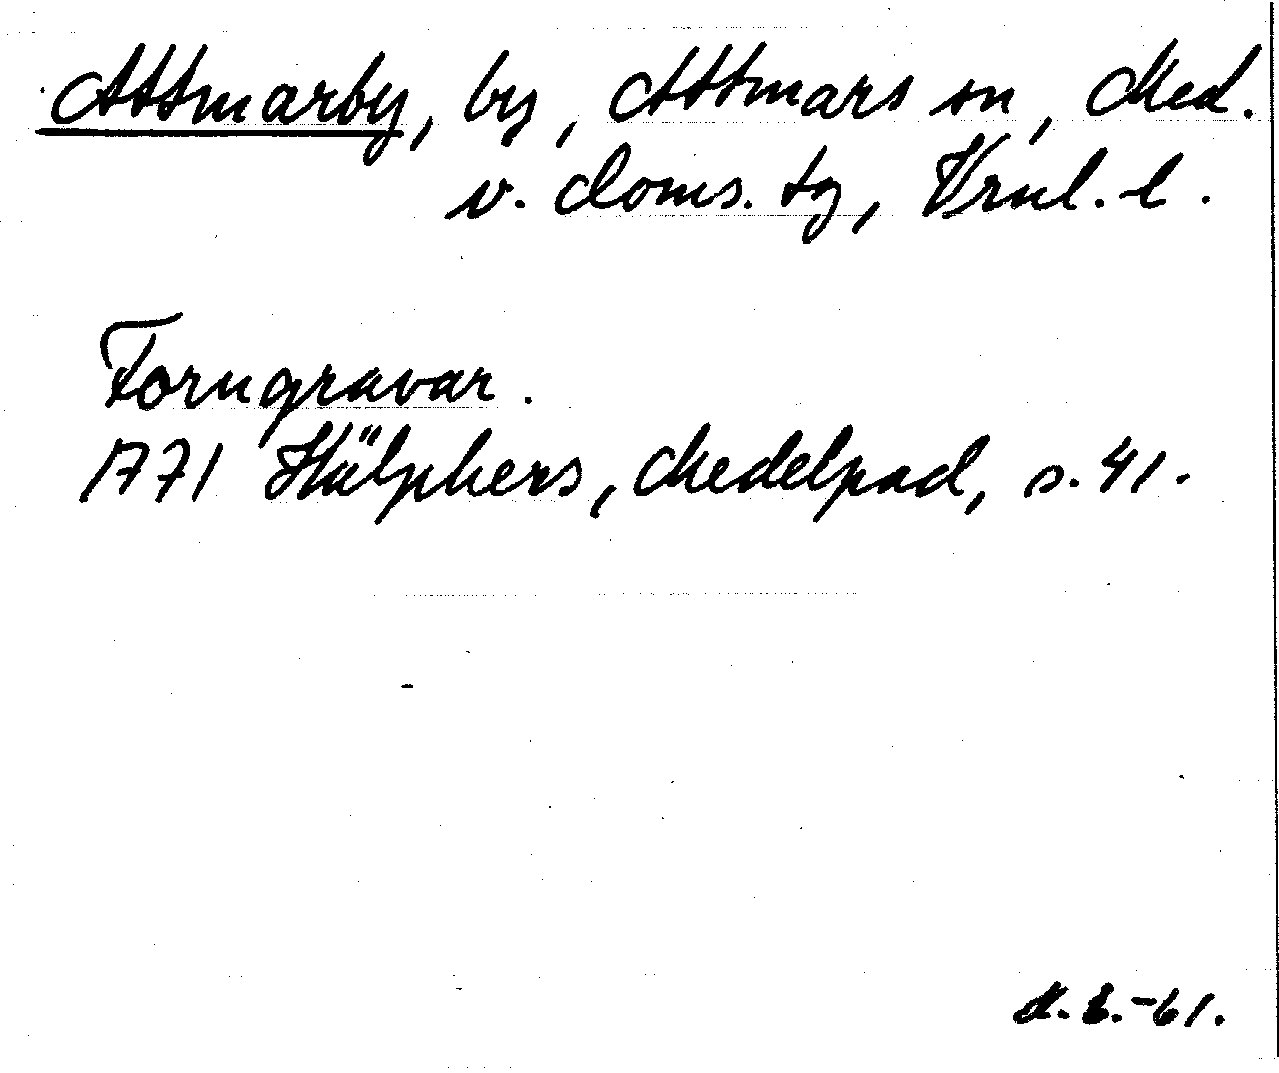 Attmarby, by, Attmars sn, Med.
v. doms. tg, Vrnl. l.
Forngravar.
1771 Hülphers, Medelpad, s. 41.
-61.